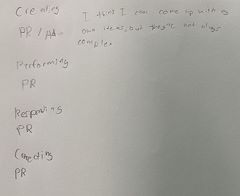 Creating
I think I can come up with my
PR / Ad- own ideas, but they're not always
complex.
Performing
PR
Responding
PR
Connecting
PR